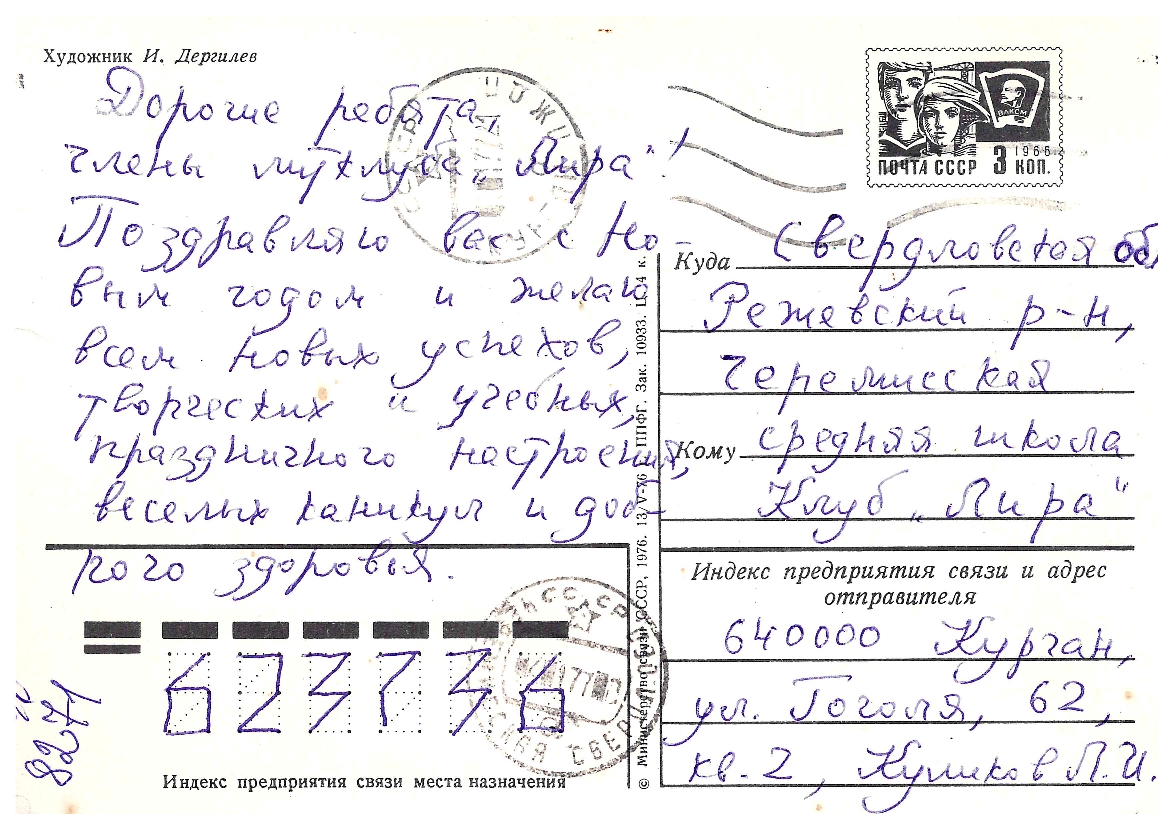 Художник И. Дергилев
Дорогие ребята,
члены литклуба „Лира“!
Поздравляю вас с Но-
вым годом и желаю
всем новых успехов,
творческих и учебных,
праздничного настроения,
веселых каникул и доб-
рого здоровья.
ВЛКСМ
1966
ПОЧТА СССР 3 КОП.
Куда Свердловская обл
Режевский р-н,
Черемисская
Кому средняя школа
Клуб „Лира“
Индекс предприятия связи и адрес
отправителя
640000 Курган,
ул. Гоголя, 62,
кв. 2, Куликов Л.И.
623736
Индекс предприятия связи места назначения
8271
© Министерство связи СССР, 1976. 13/V-76 ППФГ. Зак. 10933. Ц. 4 к.